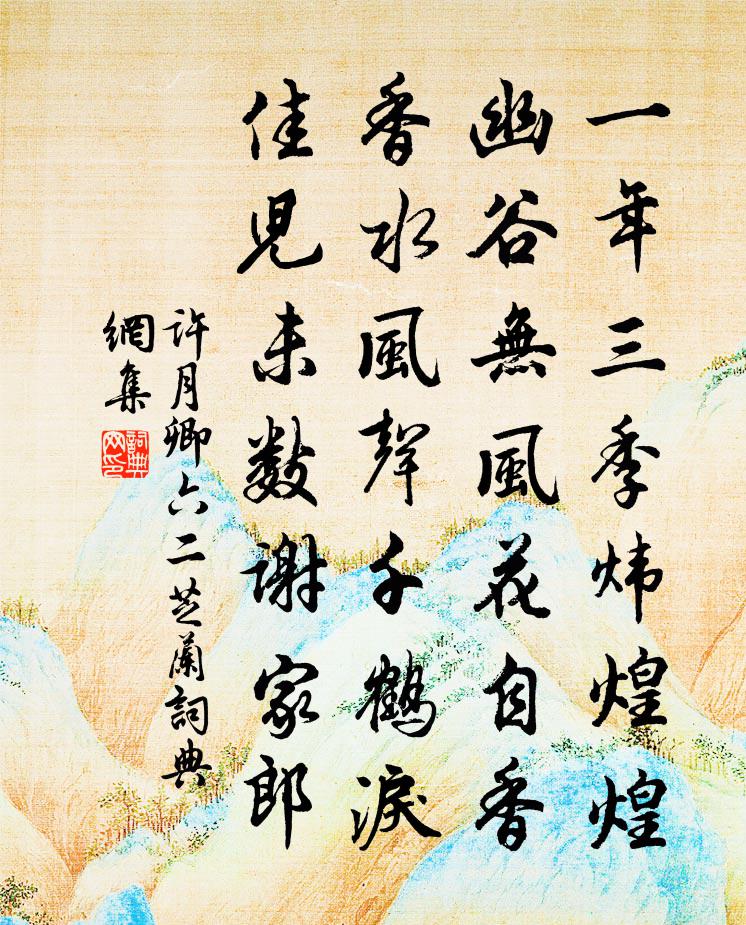 一年三季炜煌煌
幽谷無風花自香
香水風聲千鶴淚
佳児未数謝家郎
許月卿六二芝蘭詞典
網集
詞典
网印